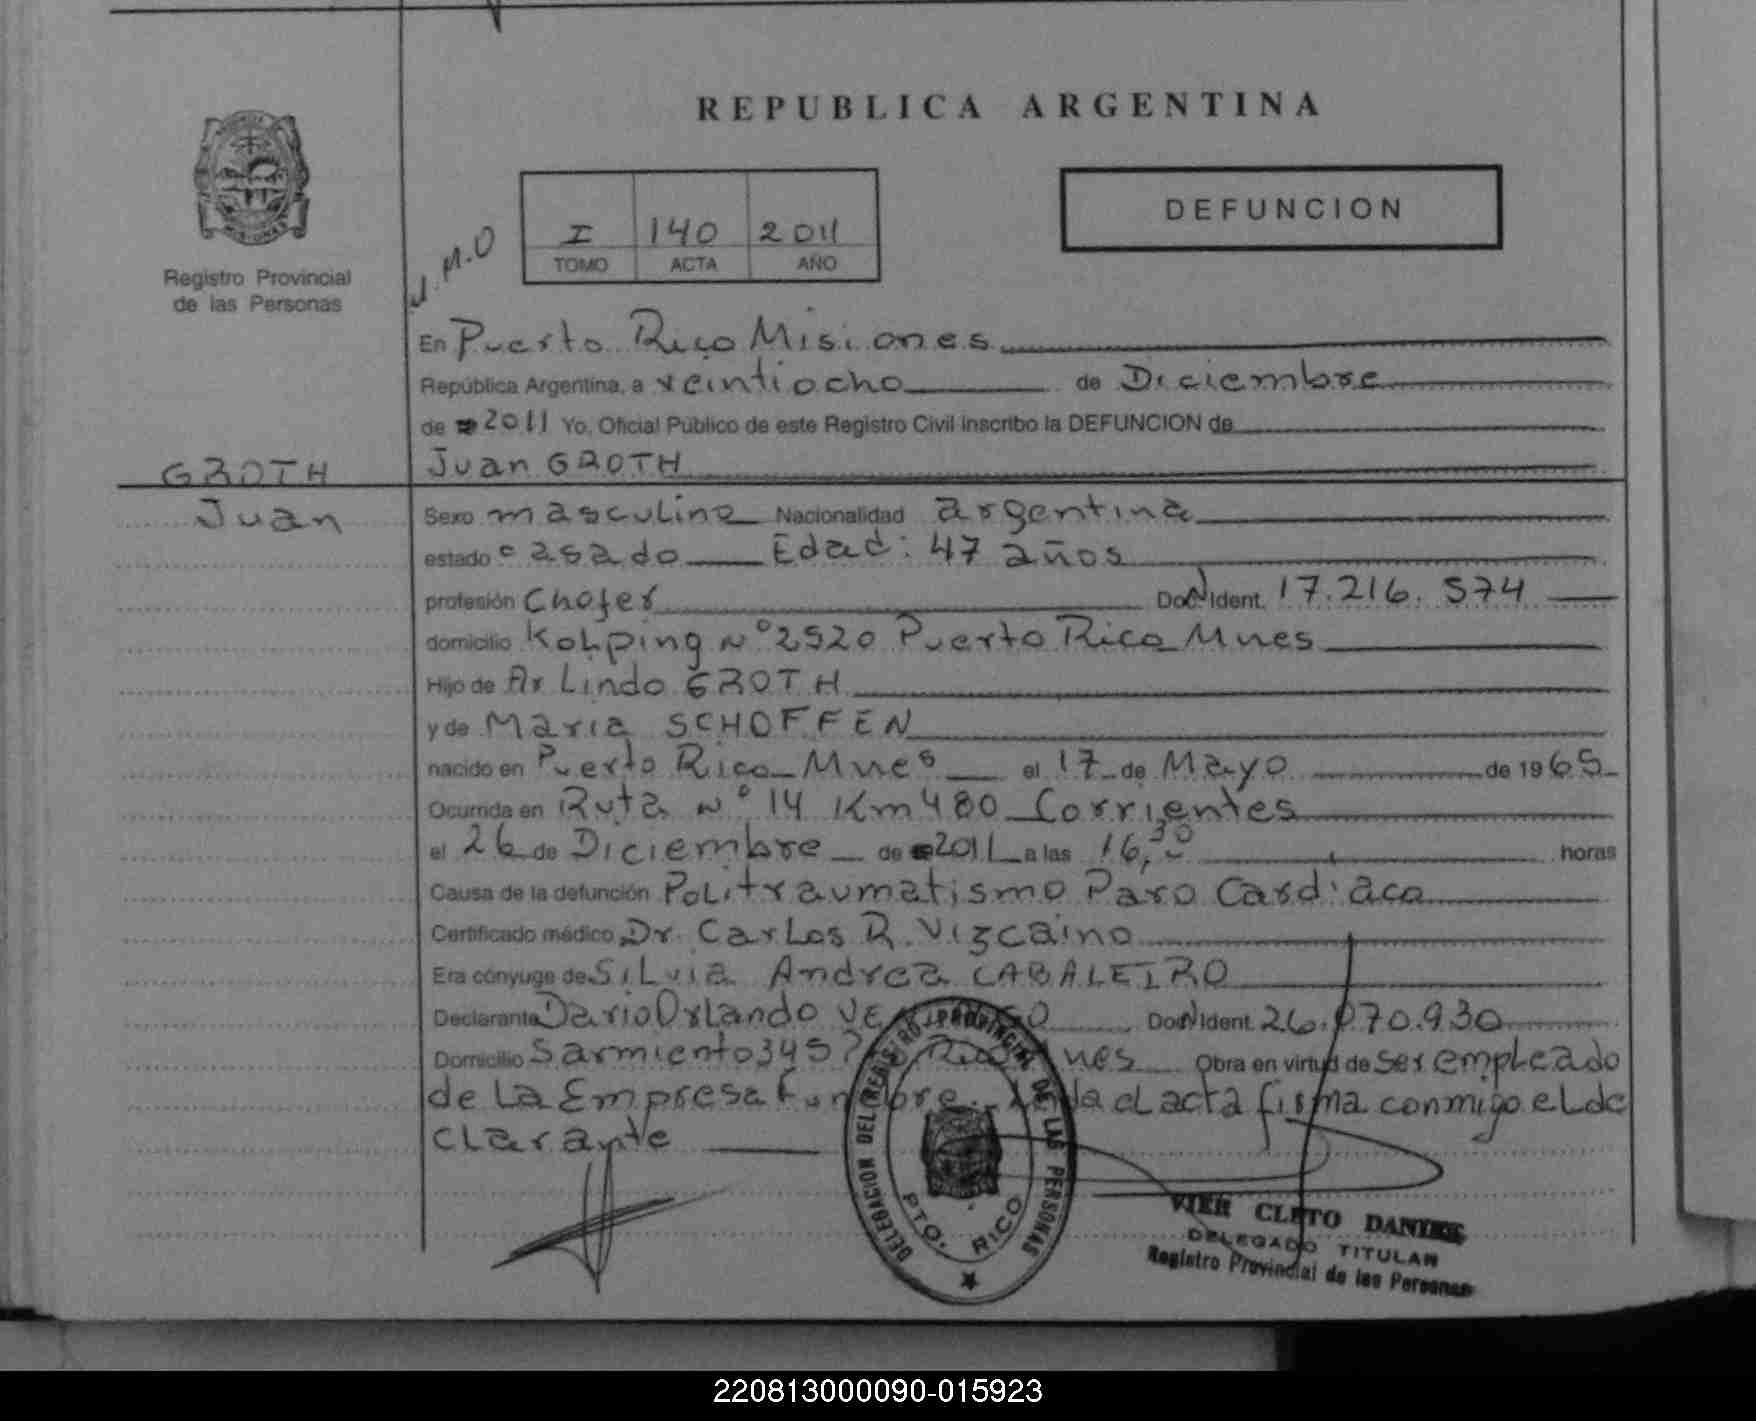 REPUBLICA ARGENTINA
DEFUNCION
I 140 2011
TOMO ACTA AÑO
Registro Provincial
de las Personas
En Puerto Rico Misiones
República Argentina, a veintiocho de Diciembre
de 2011 Yo, Oficial Público de este Registro Civil inscribo la DEFUNCION de
GROTH
Juan
Juan GROTH
Sexo masculino Nacionalidad argentina
estado casado Edad: 47 años
profesión Chofer Doc. N Ident. 17.216.574
domicilio Kolping N° 2520 Puerto Rico Mnes
Hijo de Arlindo GROTH
y de Maria SCHOFFEN
nacido en Puerto Rico Mnes el 17 de Mayo de 1965
Ocurrida en Ruta N° 14 Km 480 Corrientes
el 26 de Diciembre de 2011 a las 16,30 horas
Causa de la defunción Politraumatismo Paro Cardiaco
Certificado médico Dr. Carlos R. Vizcaino
Era cónyuge de Silvia Andrea CABALEIRO
Declarante Dario Orlando Doc. N Ident. 26.070.930
Domicilio Sarmiento 345 Rico Mnes Obra en virtud de ser empleado
de La Empresa Funebre. Leida el acta firma conmigo el de
clarante
DELEGACION DEL REGISTRO PROVINCIAL DE LAS PERSONAS
PTO. RICO
VIER CLETO DANIEL
DELEGADO TITULAR
Registro Provincial de las Personas
220813000090-015923